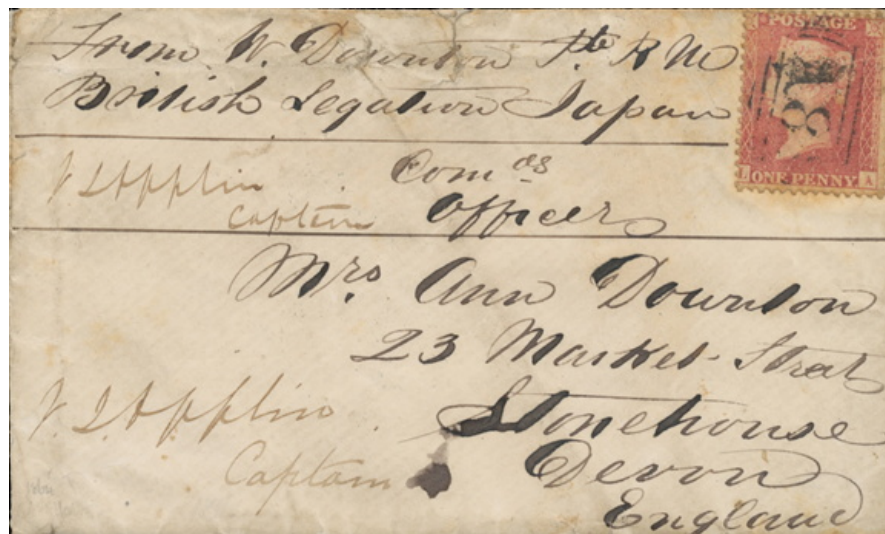 From W. Downton Pte R M
British Legation Japan
POSTAGE
ONE PENNY
L A
Comos
Officer
Applin
Captain
Mrs Ann Downton
23 Market Street
Stonehouse
Devon
England
Applin
Captain